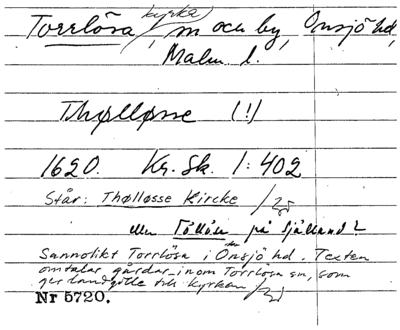 Torrlösa kyrka, sn och by, Onsjö hd,
Malm. l.
Thølløsse (!)
1620. Kr. Sk. 1:402
Står: Thølløsse Kircke
eller Töllöse på Själland?
Sannolikt Torrlösa i Onsjö hd. Texten
omtalar gårdar inom Torrlösa sn, som
ger landgille till kyrkan
Nr 5720.